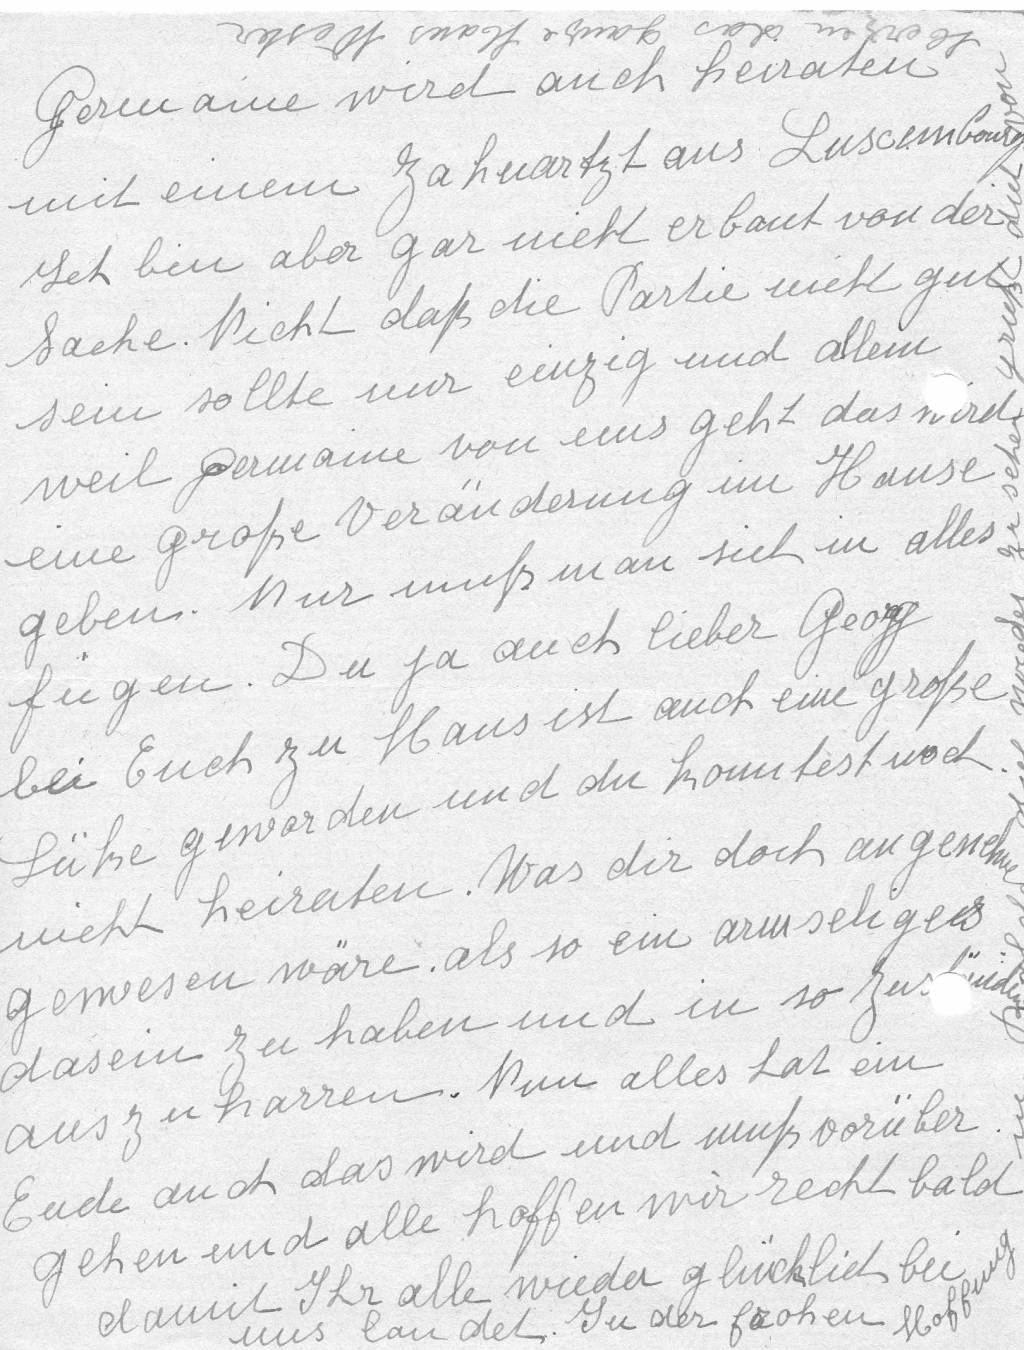 Germaine wird auch heiraten
mit einem Zahnartzt aus Luxembourg
Ich bin aber gar nicht erbaut von der
Sache. Nicht daß die Partie nicht gut
sein sollte nur einzig und allein
weil Germaine von uns geht das wird
eine große Veränderung im Hause
geben. Nur muß man sich in alles
fügen. Du ja auch lieber Georg
bei Euch zu Haus ist auch eine große
Lüke geworden und du konntest noch
nicht heiraten. Was dir doch angenehmer
gewesen wäre. als so ein armseliges
dasein zu haben und in so
auszuharren. Nun alles hat ein
Ende auch das wird und muß vorüber
gehen und alle hoffen wir recht bald
damit Ihr alle wieder glücklich bei
uns landet. In der frohen Hoffnung
dich wieder zu sehen grüßt dich von
Herzen das ganze Haus Wester